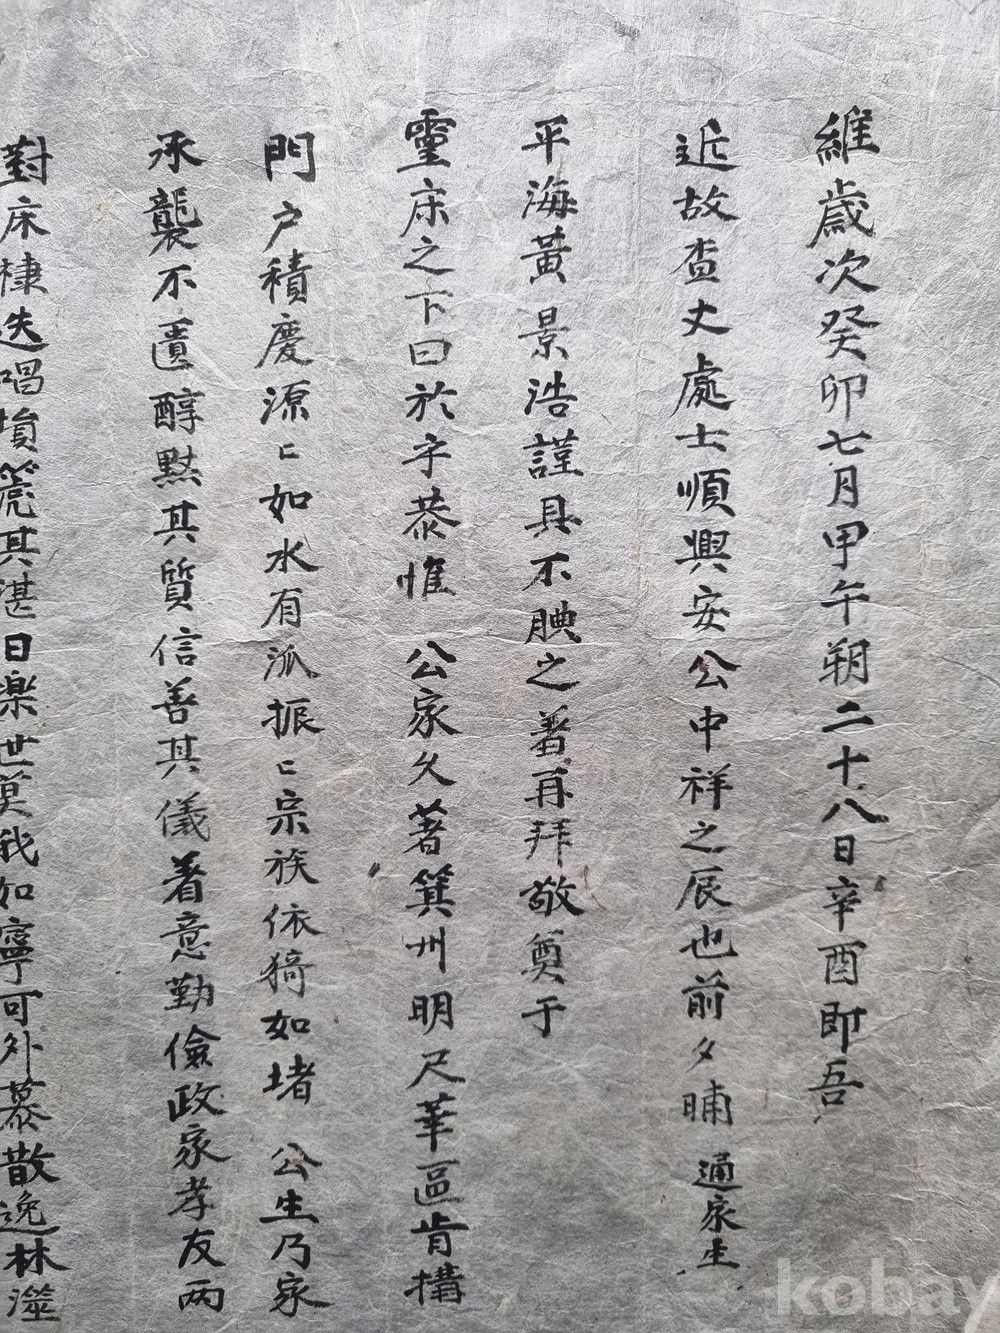 維歲次癸卯七月甲午朔二十八日辛酉卽吾
近故査丈處士順興安公中祥之辰也前夕晡 通家生
平海黃景浩謹具不腆之著再拜敬奠于
靈床之下曰於乎恭惟 公家久著箕州明尺華區肯構
門户積慶源〻如水有派振〻宗族依猗如堵 公生乃家
承襲不匱醇黙其質信善其儀着意勤儉政家孝友兩
對床棣迭唱塤篪其湛日樂世莫我如寧可外慕散逸林澨
kobay